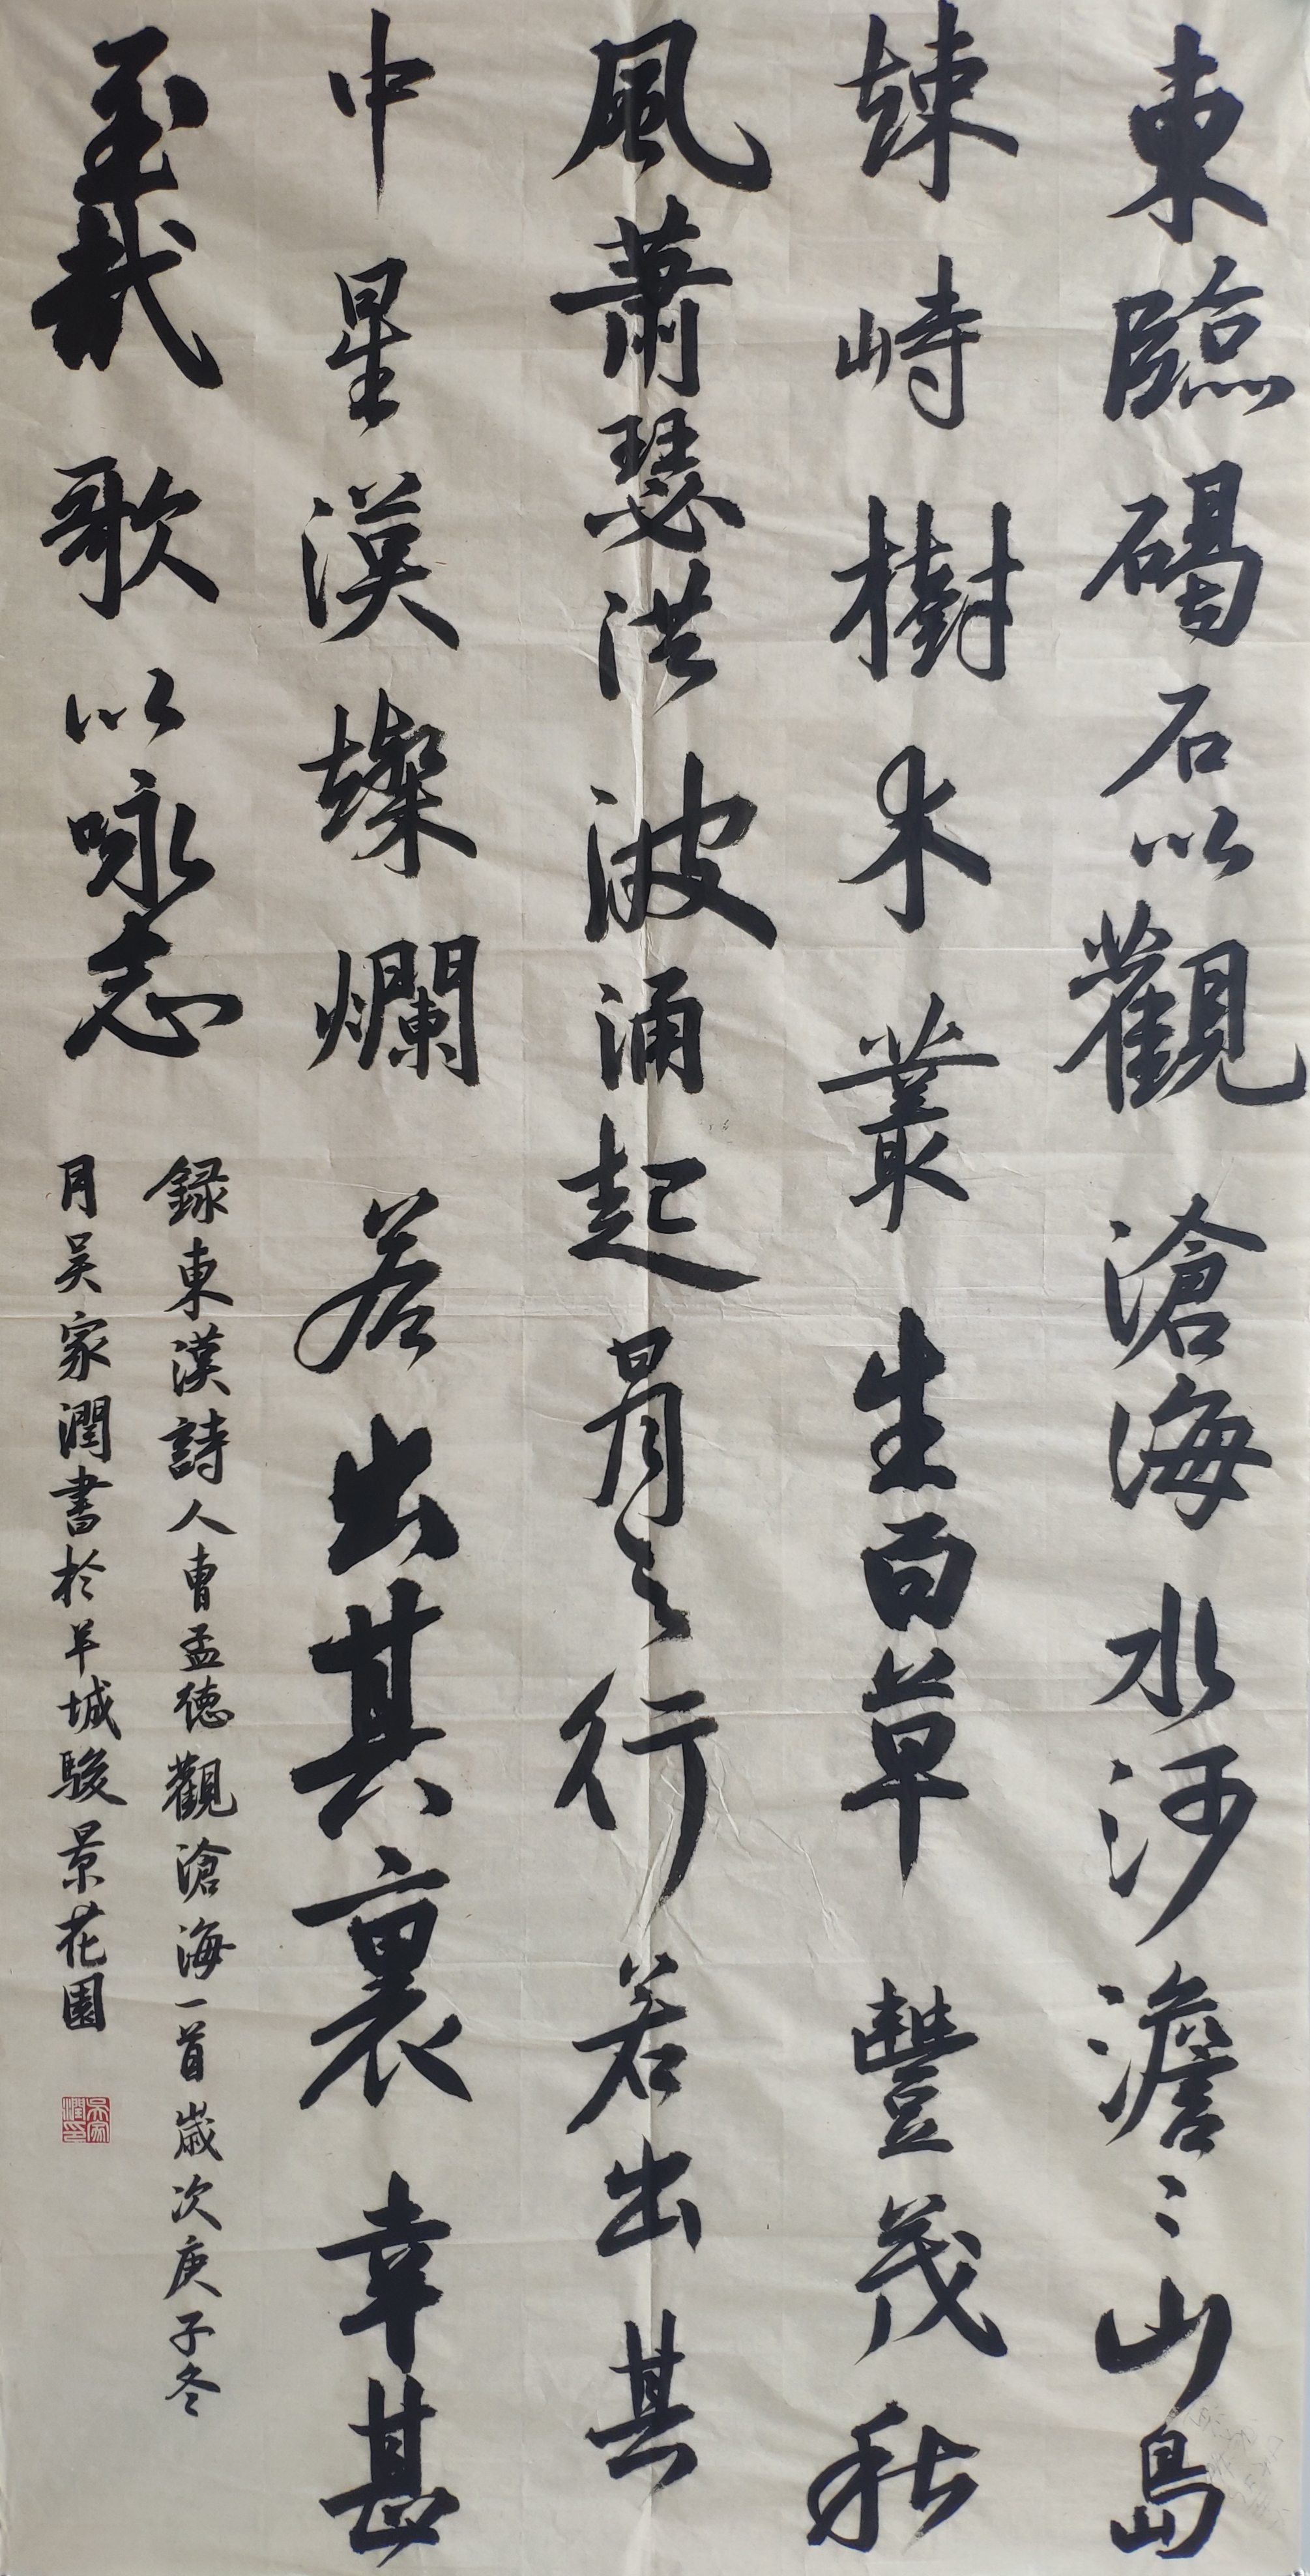 東臨碣石以觀滄海水沙澹〻山島
竦峙樹木叢生百草豐茂秋
風蕭瑟洪波涌起日月之行若出其
中星漢燦爛若出其裏幸甚
至哉歌以咏志
録東漢詩人曹孟德觀滄海一首歲次庚子冬
月吴家潤書於羊城駿景花園
吴家潤印